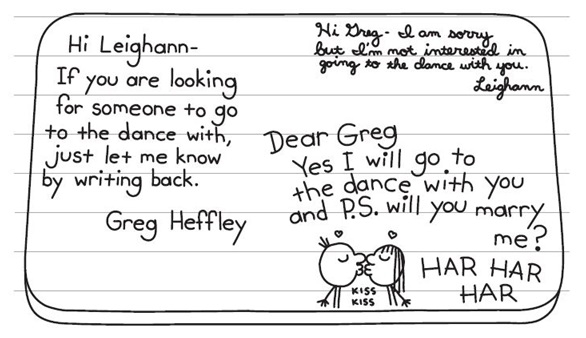 Hi Leighann-
If you are looking
for someone to go
to the dance with,
just let me know
by writing back.
Greg Heffley
Hi Greg- I am sorry
but I'm not interested in
going to the dance with you.
Leighann
Dear Greg
Yes I will go to
the dance with you
and P.S. will you marry
me?
KISS
KISS
HAR HAR
HAR